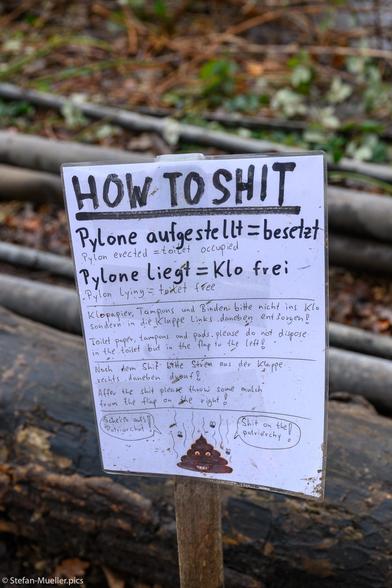 HOW TO SHIT
Pylone aufgestellt = besetzt
Pylon erected = toilet occupied
Pylone liegt = Klo frei
Pylon lying = toilet free
Klopapier, Tampons und Binden bitte nicht ins Klo
sondern in die Klappe Links daneben entsorgen!
Toilet paper, tampons and pads, please do not dispose
in the toilet but in the flap to the left!
Nach dem Shit bitte Streu aus der Klappe
rechts daneben drauf!
After the shit please throw some mulch
from the flap on the right!
Scheiß aufs
Patriarchat!
Shit on the
patriarchy!
© Stefan-Mueller.pics